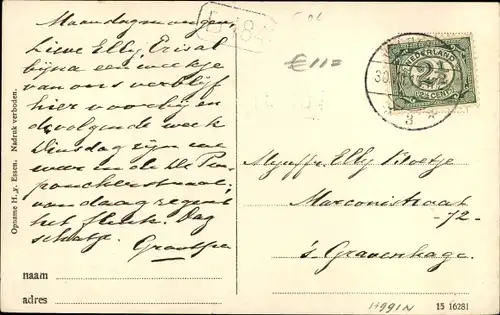 Maandagmorgen
Lieve Elly, Er is al
bijna een weekje
van ons verblijf
hier voorbij en
de volgende week
Dinsdag zijn we
weer in de De Per-
ponckerstraat,
vandaag regent
het flink. Dag
schatje.
Grootpa
naam
adres
Opname H. v. Essen. Nadruk verboden.
€11=
NEDERLAND
2½
2½ CENT
3
Mejuffr Elly Boetje
Marconistraat
-72-
's-Gravenhage.
H991N
15 16281